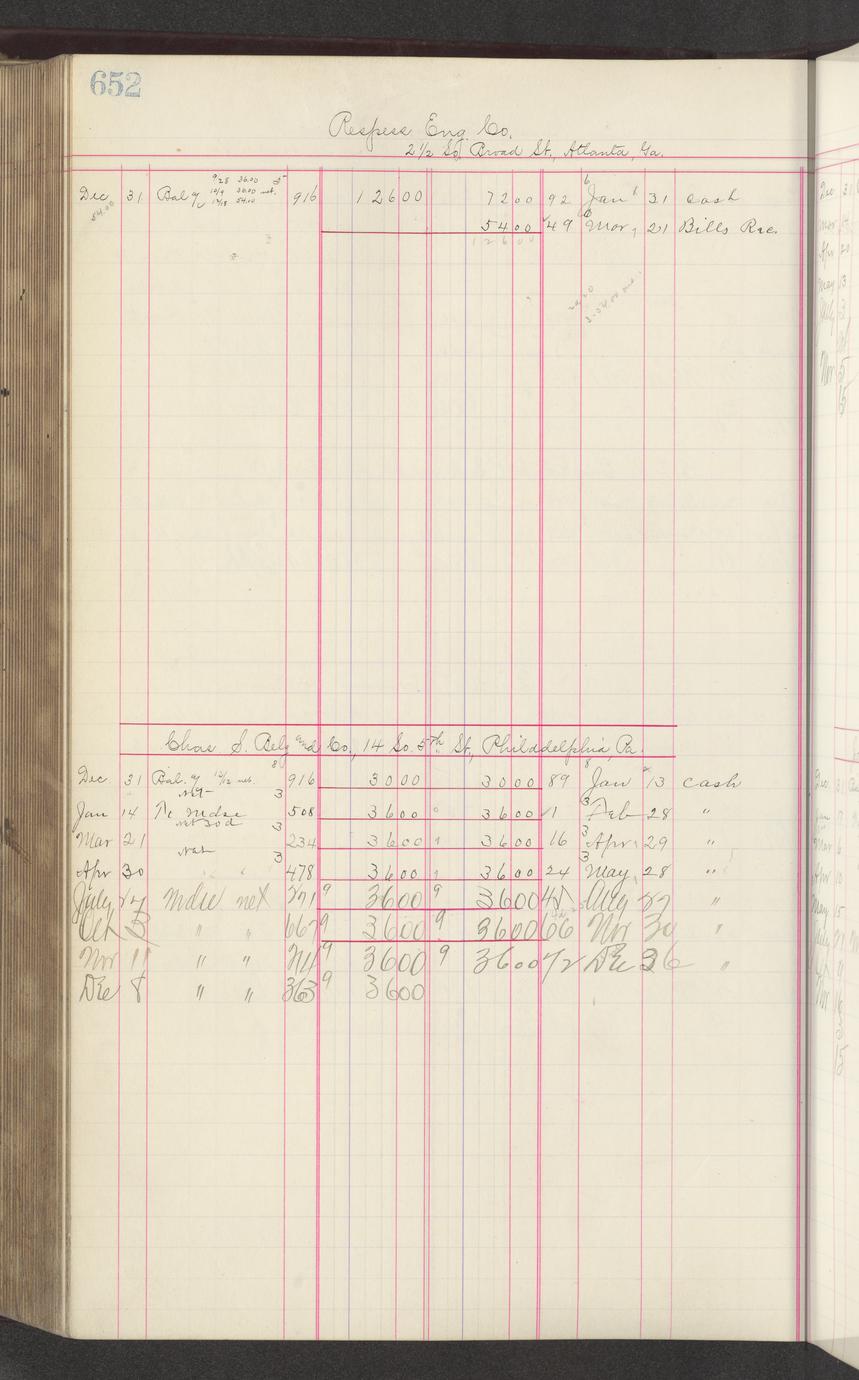 652
Respess Eng. Co.
2 1/2 So. Broad St., Atlanta, Ga.
9/28 36.00
Dec 31 Bal 10/9 36.00 net. 916 126 00 72 00 92 Jan 31 cash
54.00 54.00
54 00 49 Mar 21 Bills Rec.
126 00
Chas S. Belz and Co., 14 So. 5th St, Philadelphia, Pa.
Dec 31 Bal. 12/12 net. 916 30 00 30 00 89 Jan 13 cash
net 3
Jan 14 To Mdse 508 36 00 36 00 1 Feb 28 "
net 30d 3
Mar 21 234 36 00 36 00 16 Apr 29 "
net 3
Apr 30 " " 478 36 00 36 00 24 May 28 "
July 27 Mdse net 9 36 00 9 36 00 Aug 27 "
Oct 3 " " 667 9 36 00 9 36 00 66 Nov 30 "
Nov 11 " " 9 36 00 9 36 00 72 Dec 36 "
Dec 8 " " 363 9 36 00